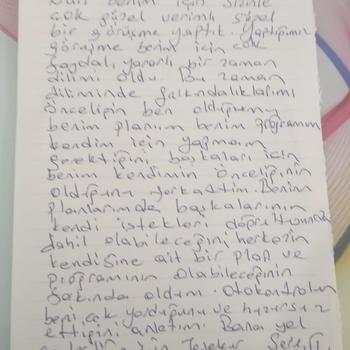 benim için sizinle
çok güzel verimli süpel
bir görüşme yaptık. Yaptığımız
görüşme benim için çok
faydalı, yararlı bir zaman
dilimi oldu Bu zaman
diliminde farkındalıklarımı
önceliğin ben olduğumu
benim planım benim programım
kendim için yaşamam
gerektiğini başkaları için
benim kendimin önceliğinin
olduğunu farkettim. Benim
planlarımda başkalarının
kendi istekleri doğrultusunda
dahil olabileceğini herkezin
kendisine ait bir plan ve
programının olabileceğinin
farkında oldum. Otokontrolun
beni çok yorduğunu ve huzursuz
ettiğini anlatım. Bana yol
için Teşekkür